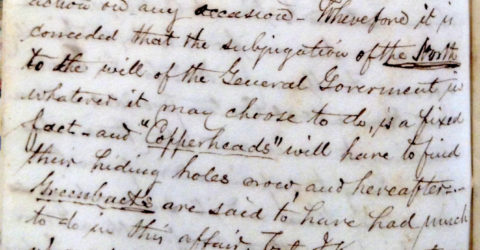 action on any occasion - Wherefore it is
conceded that the subjugation of the North
to the will of the General Goverment in
whatever it may choose to do, is a fixed
fact - and "Copperheads" will have to find
their hiding holes now, and hereafter -
Greenbacks are said to have had much
to do in this affair, but